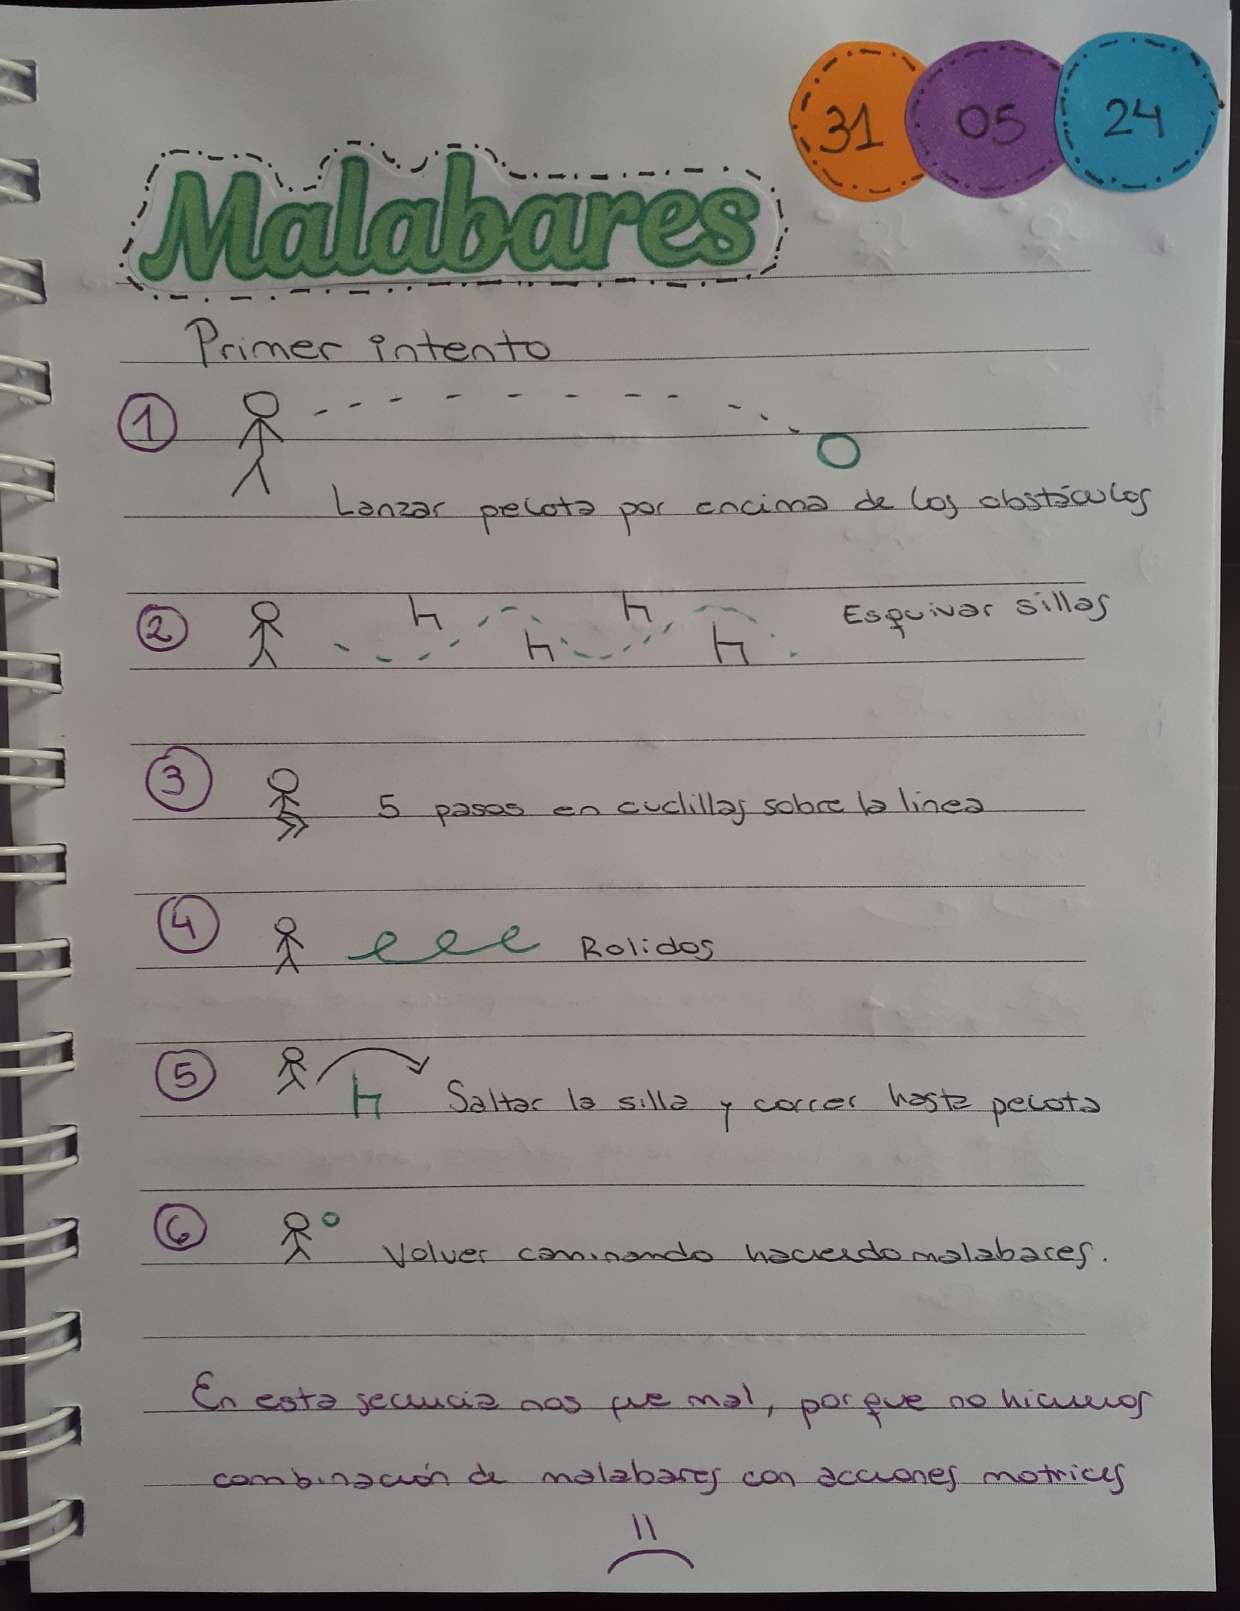 31 05 24
Malabares
Primer intento
1
Lanzar pelota por encima de los obstáculos
2 Esquivar sillas
3 5 pasos en cuclillas sobre la linea
4 Rolidos
5 Saltar la silla y correr hasta pelota
6 Volver caminando haciendo malabares.
En esta secuncia nos fue mal, porque no hicimos
combinación de malabares con acciones motrices